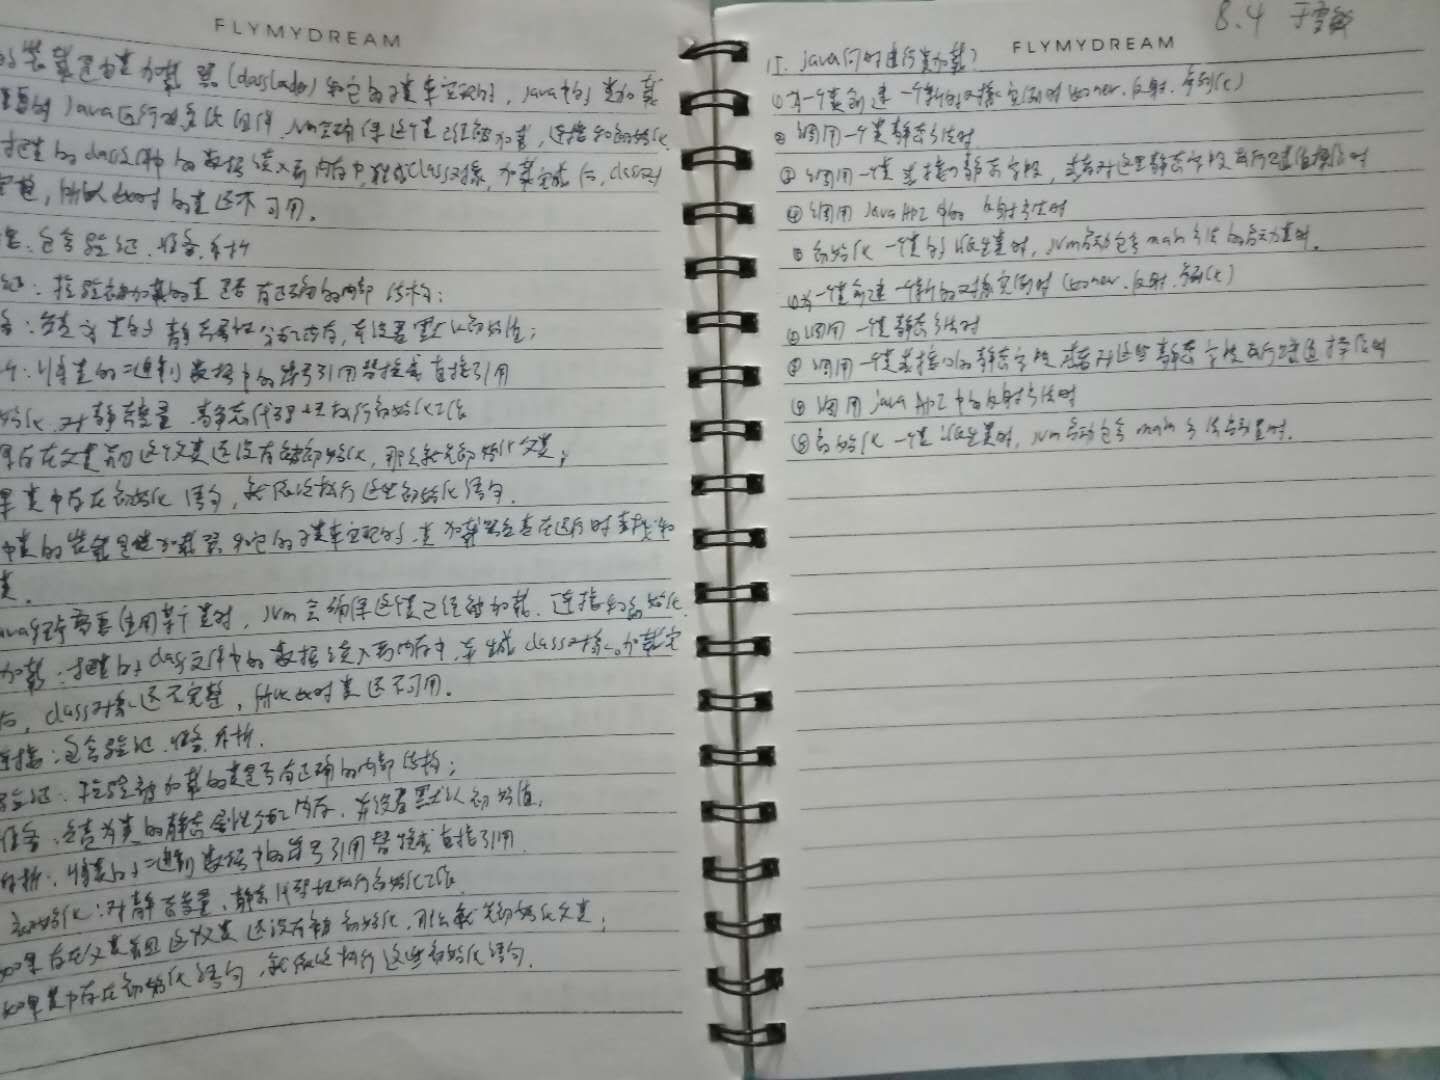 FLYMYDREAM
的装载是由类加载器(classLoader)和它的子类来实现的，java中的类加载
重要的Java运行时系统组件
JVM会确保这个类已经被加载，连接和初始化
把类的class文件中的数据读入到内存中，class对象，加载完成后，class对
完整，所以此时的类还不可用。
包含验证、准备、解析
证：检验被加载的类是否有正确的内部结构；
类的静态属性分配内存，并设置默认初始值；
将类的二进制数据中的符号引用替换成直接引用
始化，对静态变量，静态代码块执行初始化工作
存在父类且这个父类还没有被初始化，那么就先初始化父类；
果类中存在初始化语句，就依次执行这些初始化语句。
中类的装载是类加载器和它的子类来实现的，类加载器负责在运行时查找和
类。
ava程序需要使用某个类时，JVM会确保这个类已经被加载、连接和初始化
加载：把类的class文件中的数据读入到内存中，并生成class对象。加载完
后，class对象还不完整，所以此时类还不可用。
连接：包含验证、准备、解析。
验证：检验被加载的类是否有正确的内部结构；
准备：负责为类的静态属性分配内存，并设置默认初始值。
解析：将类的二进制数据中的符号引用替换成直接引用
初始化：对静态变量，静态代码块执行初始化工作
如果存在父类且这个父类还没有被初始化，那么就先初始化父类；
如果类中存在初始化语句，就依次执行这些初始化语句。
8.4
FLYMYDREAM
java何时进行类加载？
①为一个类创建一个新的对象实例时(new、反射、序列化)
②调用一个类静态方法时
③调用一个类或接口静态字段，或者对这些静态字段执行赋值操作时
④调用Java API中的反射方法时
⑤初始化一个类的派生类时，JVM启动包含main方法的启动类时。
①为一个类创建一个新的对象实例时(new、反射、序列化)
②调用一个类静态方法时
③调用一个类或接口的静态字段，或者对这些静态字段执行赋值操作时
④调用java API中的反射方法时
⑤初始化一个类派生类时，JVM启动包含main方法启动类时。